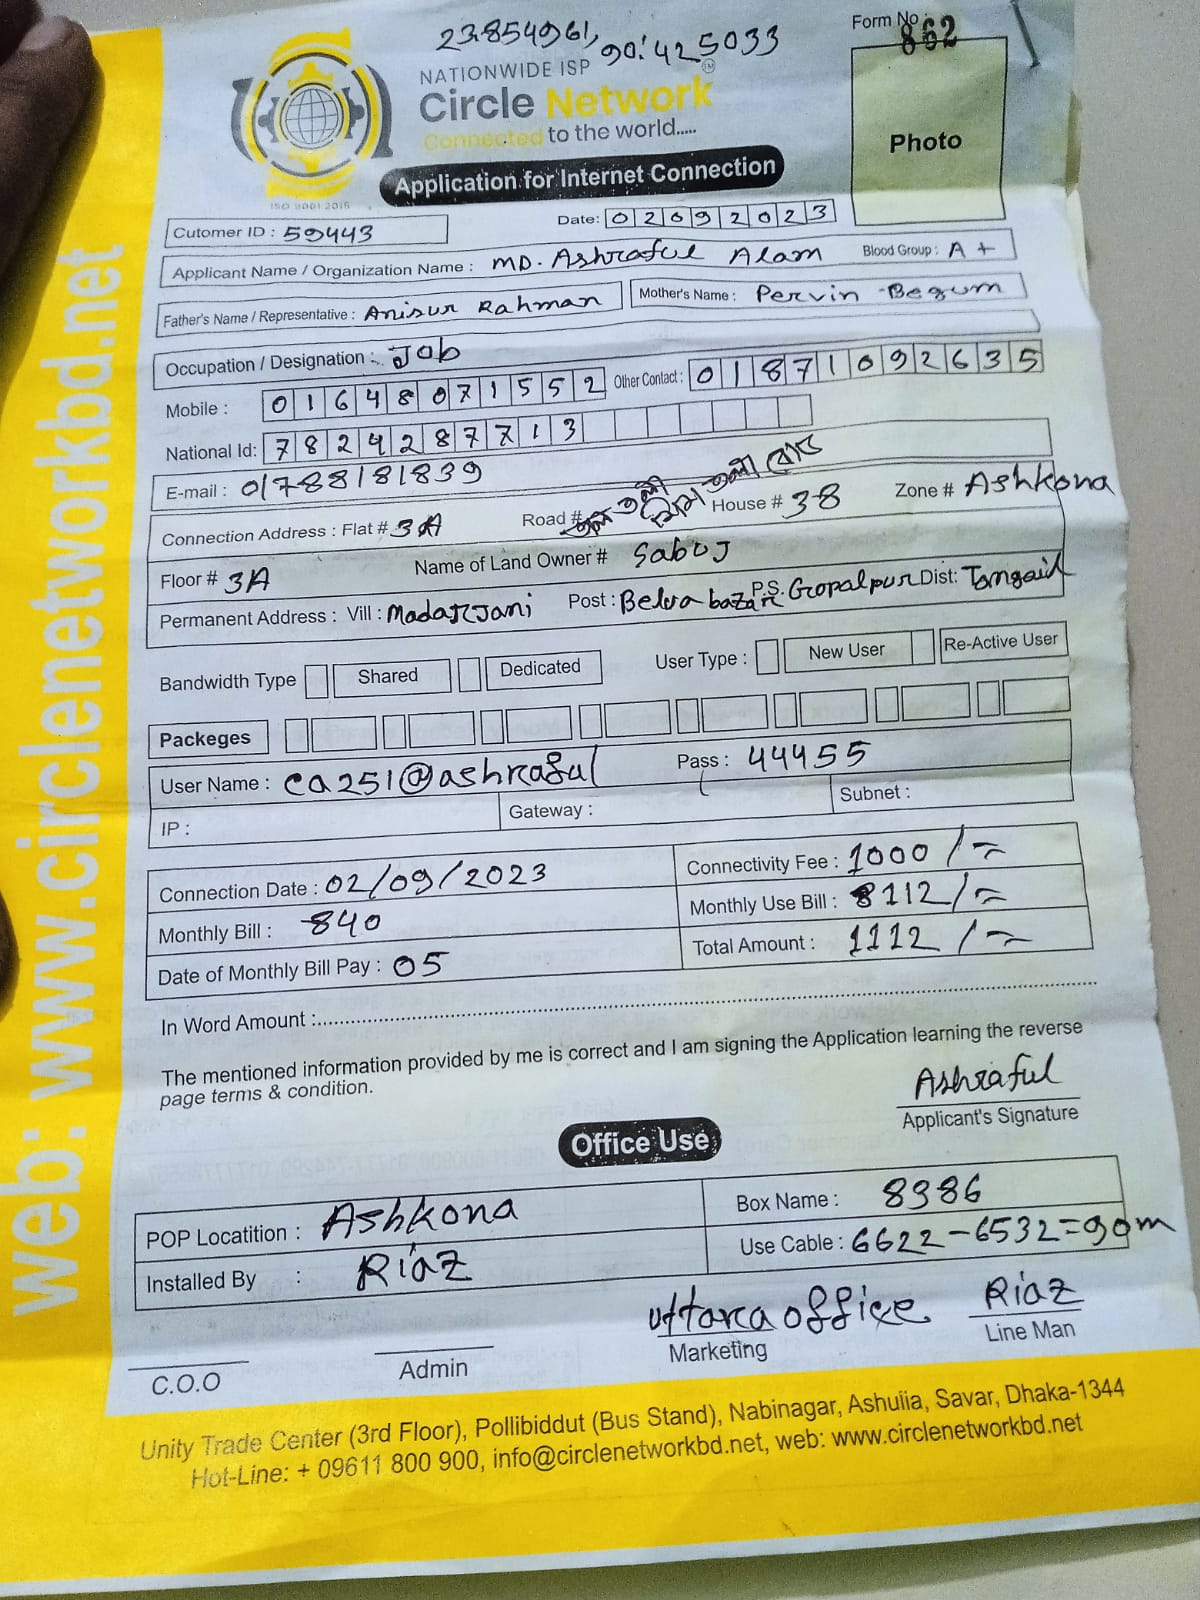 23.854961,
90.425033
Form No 862
NATIONWIDE ISP
Circle Network
Connected to the world.....
ISO 9001:2015
Photo
Application for Internet Connection
Date: 02092023
Cutomer ID : 59443
Applicant Name / Organization Name : MD. Ashraful Alam Blood Group : A+
Father's Name / Representative : Anisur Rahman Mother's Name : Pervin Begum
Occupation / Designation : Job
Mobile : 01648071552 Other Contact : 01871092635
National Id: 7824287713
E-mail : 01788181839
Connection Address : Flat # 3A Road # House # 38 Zone # Ashkona
Floor # 3A Name of Land Owner # Saboj
Permanent Address : Vill : Madarjani Post : Belua bazar P.S. Gopalpur Dist: Tangail
Bandwidth Type Shared Dedicated User Type : New User Re-Active User
Packeges
User Name : ca251@ashraful Pass : 44455
IP : Gateway : Subnet :
Connection Date : 02/09/2023 Connectivity Fee : 1000/=
Monthly Bill : 840 Monthly Use Bill : 112/=
Date of Monthly Bill Pay : 05 Total Amount : 1112/=
In Word Amount :
The mentioned information provided by me is correct and I am signing the Application learning the reverse
page terms & condition.
Ashraful
Applicant's Signature
Office Use
POP Locatition : Ashkona Box Name : 8986
Installed By : Riaz Use Cable : 6622-6532=90m
uttara office Riaz
C.O.O Admin Marketing Line Man
Unity Trade Center (3rd Floor), Pollibiddut (Bus Stand), Nabinagar, Ashulia, Savar, Dhaka-1344
Hot-Line: + 09611 800 900, info@circlenetworkbd.net, web: www.circlenetworkbd.net
web: www.circlenetworkbd.net